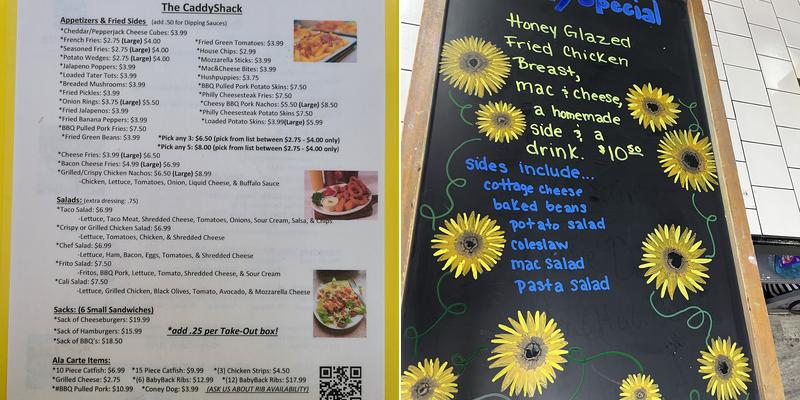 The CaddyShack
Appetizers & Fried Sides (add .50 for Dipping Sauces)
*Cheddar/Pepperjack Cheese Cubes: $3.99
*French Fries: $2.75 (Large) $4.00
*Seasoned Fries: $2.75 (Large) $4.00
*Potato Wedges: $2.75 (Large) $4.00
*Jalapeno Poppers: $3.99
*Loaded Tater Tots: $3.99
*Breaded Mushrooms: $3.99
*Fried Pickles: $3.99
*Onion Rings: $3.75 (Large) $5.50
*Fried Jalapenos: $3.99
*Fried Banana Peppers: $3.99
*BBQ Pulled Pork Fries: $7.50
*Fried Green Beans: $3.99
*Fried Green Tomatoes: $3.99
*House Chips: $2.99
*Mozzarella Sticks: $3.99
*Mac&Cheese Bites: $3.99
*Hushpuppies: $3.75
*BBQ Pulled Pork Potato Skins: $7.50
*Philly Cheesesteak Fries: $7.50
*Cheesy BBQ Pork Nachos: $5.50 (Large) $8.50
*Philly Cheesesteak Potato Skins: $7.50
*Loaded Potato Skins: $3.99(Large) $5.99
*Pick any 3: $6.50 (pick from list between $2.75 - $4.00 only)
*Pick any 5: $8.00 (pick from list between $2.75 - $4.00 only)
*Cheese Fries: $3.99 (Large) $6.50
*Bacon Cheese Fries: $4.99 (Large) $6.99
*Grilled/Crispy Chicken Nachos: $6.50 (Large) $8.99
-Chicken, Lettuce, Tomatoes, Onion, Liquid Cheese, & Buffalo Sauce
Salads: (extra dressing: .75)
*Taco Salad: $6.99
-Lettuce, Taco Meat, Shredded Cheese, Tomatoes, Onions, Sour Cream, Salsa, & Chips
*Crispy or Grilled Chicken Salad: $6.99
-Lettuce, Tomatoes, Chicken, & Shredded Cheese
*Chef Salad: $6.99
-Lettuce, Ham, Bacon, Eggs, Tomatoes, & Shredded Cheese
*Frito Salad: $7.50
-Fritos, BBQ Pork, Lettuce, Tomato, Shredded Cheese, & Sour Cream
*Cali Salad: $7.50
-Lettuce, Grilled Chicken, Black Olives, Tomato, Avocado, & Mozzarella Cheese
Sacks: (6 Small Sandwiches)
*Sack of Cheeseburgers: $19.99
*Sack of Hamburgers: $15.99
*Sack of BBQ's: $18.50
*add .25 per Take-Out box!
Ala Carte Items:
*10 Piece Catfish: $6.99 *15 Piece Catfish: $9.99 *(3) Chicken Strips: $4.50
*Grilled Cheese: $2.75 *(6) BabyBack Ribs: $12.99 *(12) BabyBack Ribs: $17.99
*#BBQ Pulled Pork: $10.99 *Coney Dog: $3.99 (ASK US ABOUT RIB AVAILABILITY)
Special
Honey Glazed
Fried Chicken
Breast,
mac & cheese,
a homemade
side & a
drink. $10.50
sides include...
cottage cheese
baked beans
potato salad
coleslaw
mac salad
pasta salad